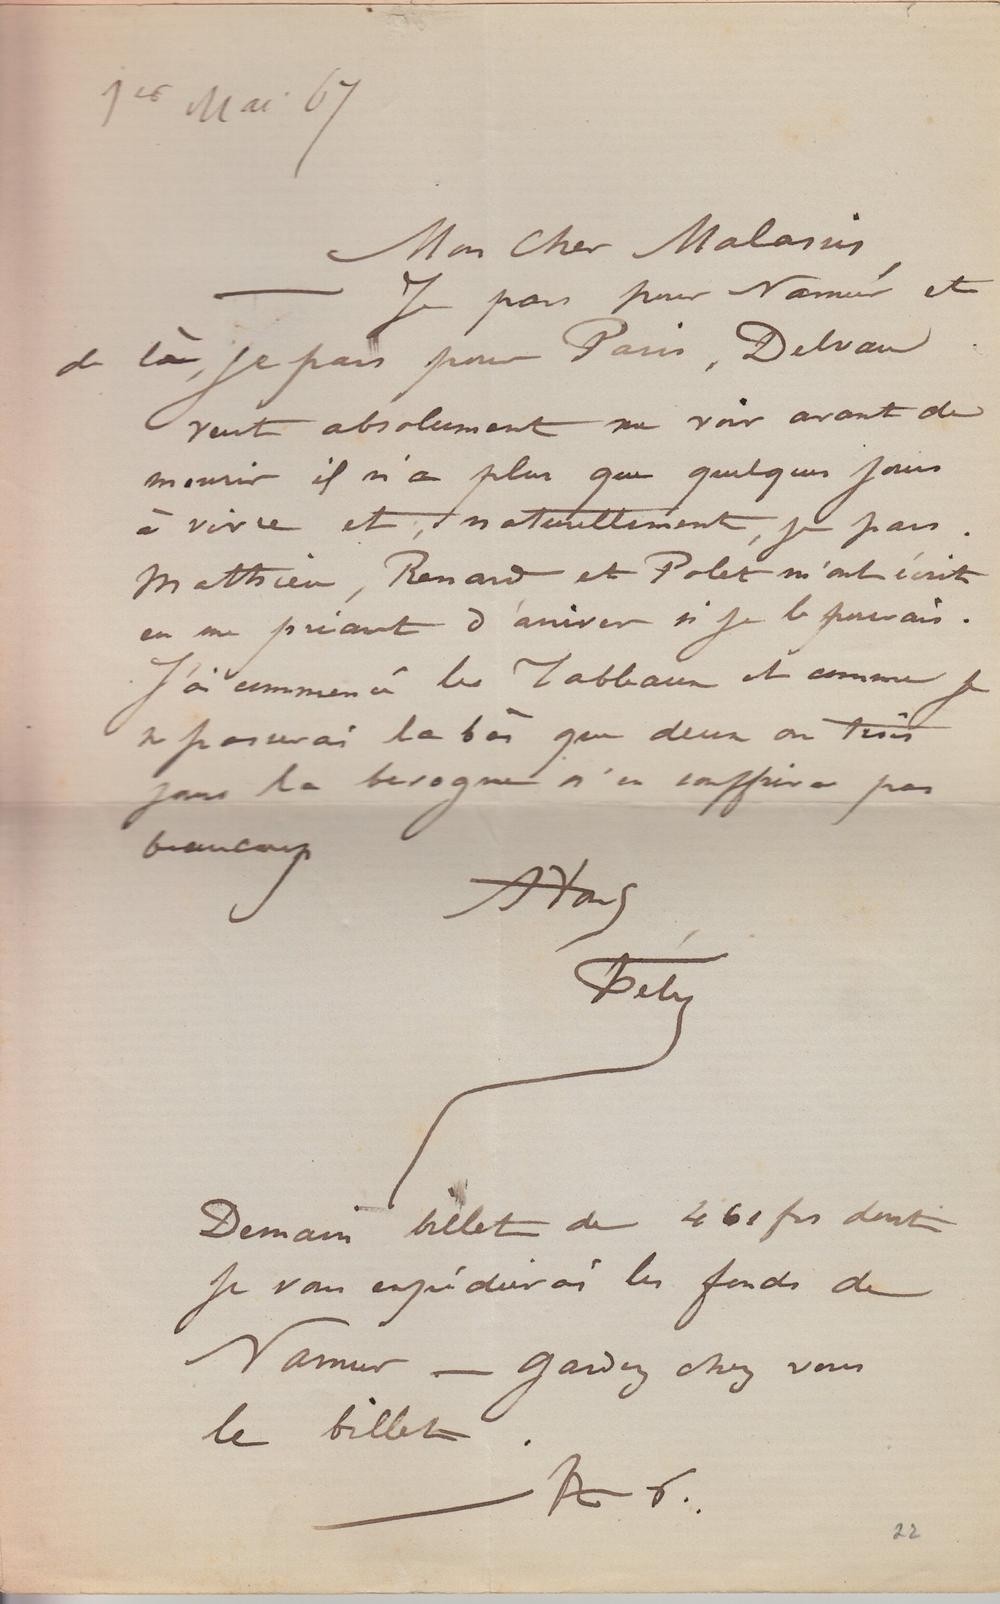 1er Mai 67
Mon Cher Malassis,
Je pars pour Namur et
de là, je pars pour Paris, Delvau
veut absolument me voir avant de
mourir il n'a plus que quelques jours
à vivre et, naturellement, je pars.
Mathieu, Renard et Polet m'ont écrit
en me priant d'arriver si je le pouvais.
J'ai commencé les Tableaux et comme je
ne passerai là bàs que deux ou trois
jours la besogne n'en souffrira pas
beaucoup
A Vous
Fély
Demain billet de 461 frs dont
je vous expédierai les fonds de
Namur — Gardez chez vous
le billet.
22